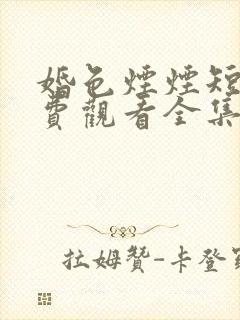 婚色煙煙短
費觀看全集
拉姆贊-卡登羅